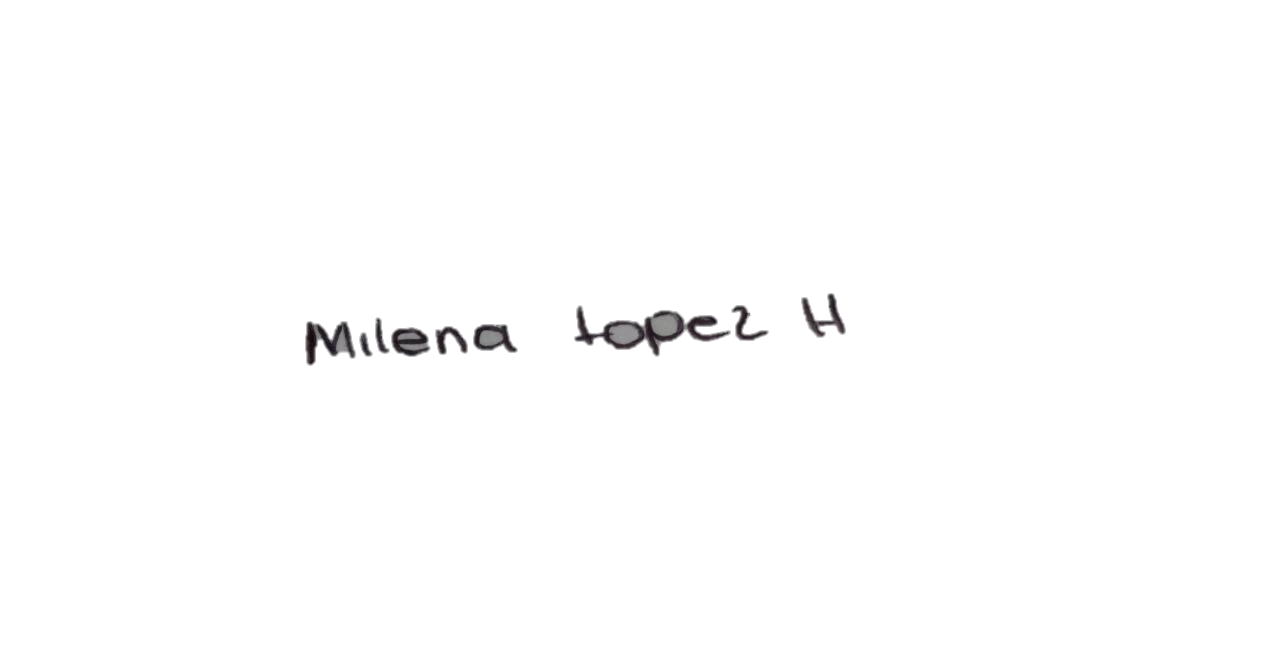 Milena Lopez H